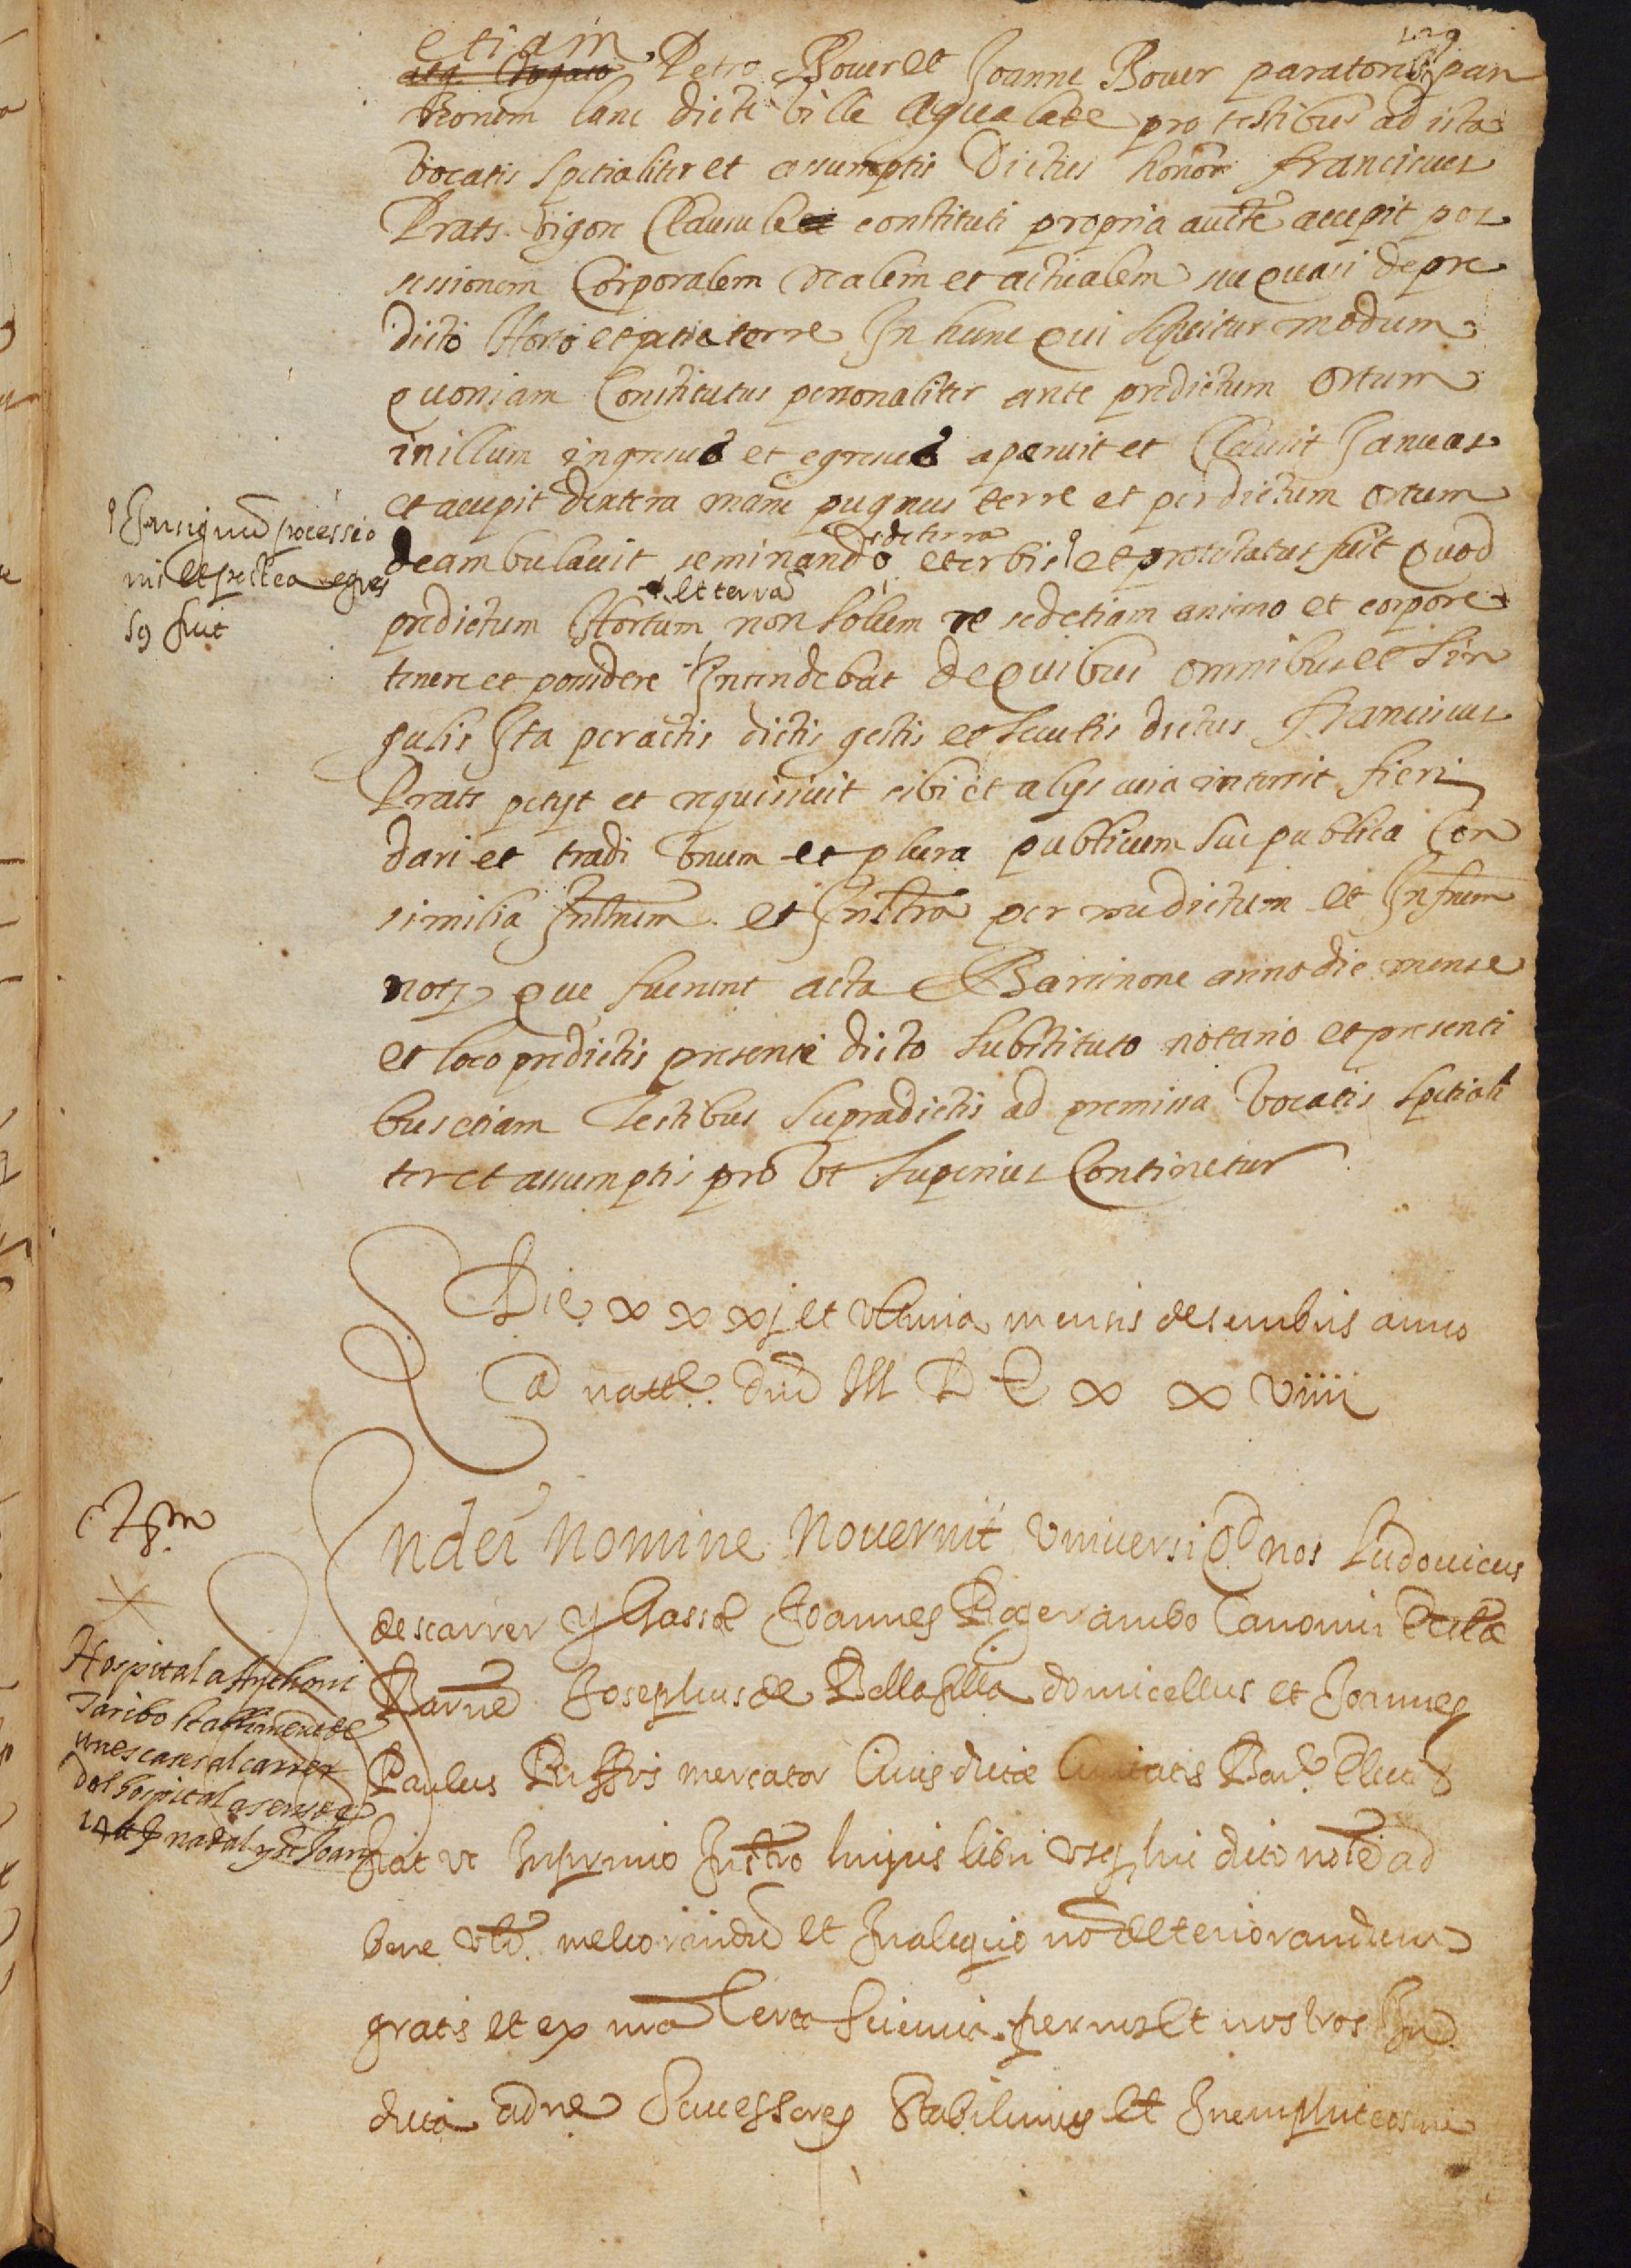 129
etiam
Petro Bover et Joanne Bover paratoribus pan
norum lane dicte ville Agualate pro testibus ad ista
vocatis spetialiter et assumptis Dictus honor franciscus
Prats vigore Clausule constituti propria aucte accepit pos
sessionem Corporalem realem et actualem seu quasi de pre
dicto Horto et petie terre In hunc qui sequitur modum
quoniam Constitutus personaliter ante predictum Ortum
in illum ingressus et egressus aperuit et Clausit Januas
et accepit dextera manu pugnus terre et per dictum ortum
sde terra
deambulavit seminando et erbis et protestatus fuit quod
et terra
predictum Hortum non solum re sed etiam animo et corpore
tenere et possidere Intendebat De quibus omnibus et sin
gulis Ita peractis dictis gestis et secutis dictus franciscus
Prats petyt et requisivit sibi et alys cuia intererit fieri
dari et tradi Unum et plura publicum sue publica Con
similia Instrum. et Instra per me dictum et Infrum
notm que fuerunt acta Barcinone anno die mense
et loco predictis presente dicto substituto notario et presenti
bus etiam testibus supradictis ad premissa vocatis spetiali
ter et assumptis pro ut superius Continetur
In signum possessio
nis et postea egres
sus fuit
Die xxxj et ultima mensis desembris anno
a natte. Dni M D C x x viiii
In dei nomine Noverint universi Qd nos Ludovicus
descarrer y Gassol Joannes Roger ambo Canonici
Barne Josephus de Bellafilla domicellus et Joannes
Paulus mercator Civis dicte Civitatis Bar.
fiat ut In primo Instro huiusis libri usq hic dicto note ad
bene meliorandu et In aliquio no deteriorandum
gratis et ex nra Certa scientia per nos et nostros In
dicta adne Successores Stabilimus et In emphiteosim
Hospital a Anthoni
Taribo stabliment de
unes cases al carrer
del hospital a sens de
nadal y st Joan